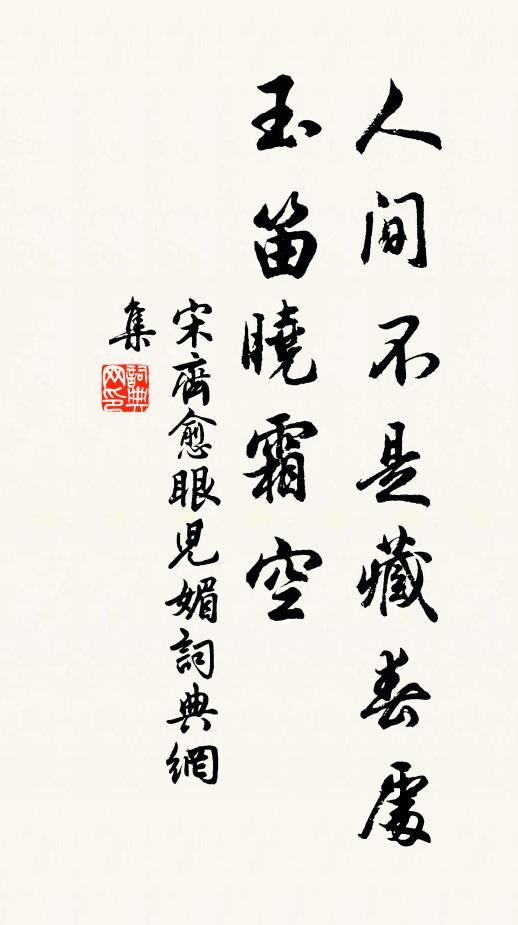 人間不是藏春處
玉笛曉霜空
宋齊愈眼兒媚詞典網
集
詞典網印